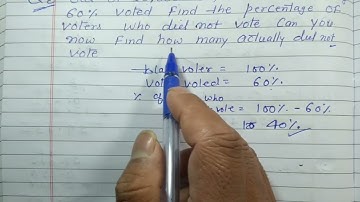 Q2 Out of
60% voted Find the percentage of
voters who did not vote Can you
now Find how many actually did not
vote
voter = 100%
voted = 60%.
% of who
vote = 100% - 60%
40%